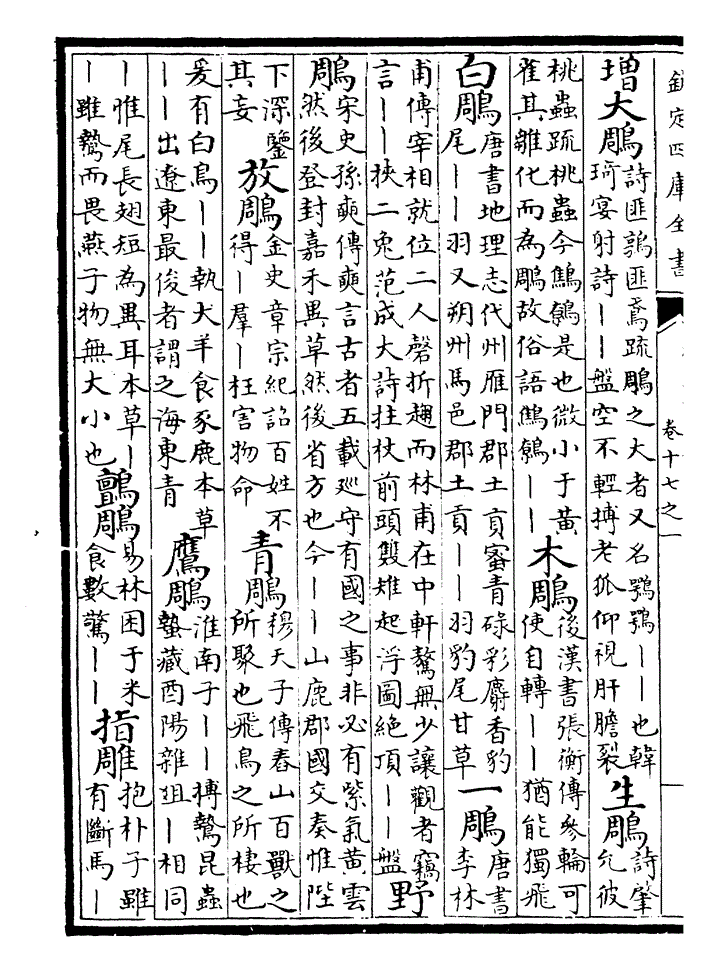 欽定四庫全書
卷十七之一
增大鵰
詩匪鶉匪鳶疏鵰之大者又名鶚鶚丨丨也韓
琦宴射詩丨丨盤空不輕搏老狐仰視肝膽裂
生鵰
詩肇
允彼
桃蟲疏桃蟲今鷦鷯是也微小于黄
雀其雛化而為鵰故俗語鷦鷯丨丨
木鵰
後漢書張衡傳參輪可
使自轉丨丨猶能獨飛
白鵰
唐書地理志代州雁門郡土貢蜜青碌彩麝香豹
尾丨丨羽又朔州馬邑郡土貢丨丨羽豹尾甘草
一鵰
唐書
李林
甫傳宰相就位二人磬折趨而林甫在中軒驁無少讓觀者竊
言丨丨挾二兔范成大詩拄杖前頭雙雉起浮圖絶頂丨丨盤
野
鵰
宋史孫奭傳奭言古者五載廵守有國之事非必有紫氣黄雲
然後登封嘉禾異草然後省方也今丨丨山鹿郡國交奏惟陛
下深鑒
其妄
放鵰
金史章宗紀詔百姓不
得丨羣丨枉害物命
青鵰
穆天子傳舂山百獸之
所聚也飛鳥之所棲也
爰有白鳥丨丨執犬羊食豕鹿本草
丨丨出遼東最俊者謂之海東青
鷹鵰
淮南子丨丨搏鷙昆蟲
蟄藏酉陽雜俎丨相同
丨惟尾長翅短為異耳本草丨
丨雖鷙而畏燕子物無大小也
鸇鵰
易林困于米
食數驚丨丨
指雕
抱朴子雖
有斷馬丨